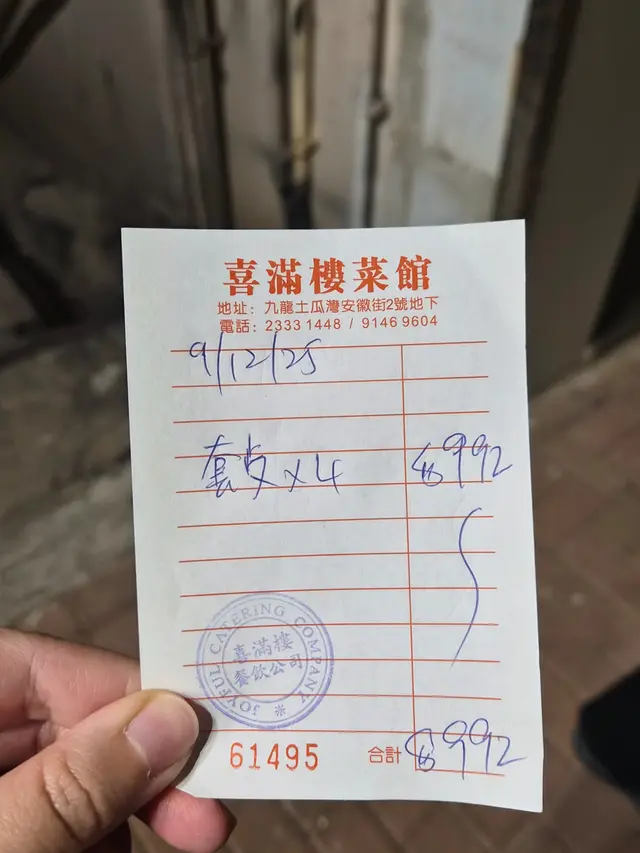 喜滿樓菜館
地址：九龍土瓜灣安徽街2號地下
電話：2333 1448 / 9146 9604
9/12/25
套餐 x4 $992
JOYFUL CATERING COMPANY
喜滿樓
餐飲公司
61495 合計 $992